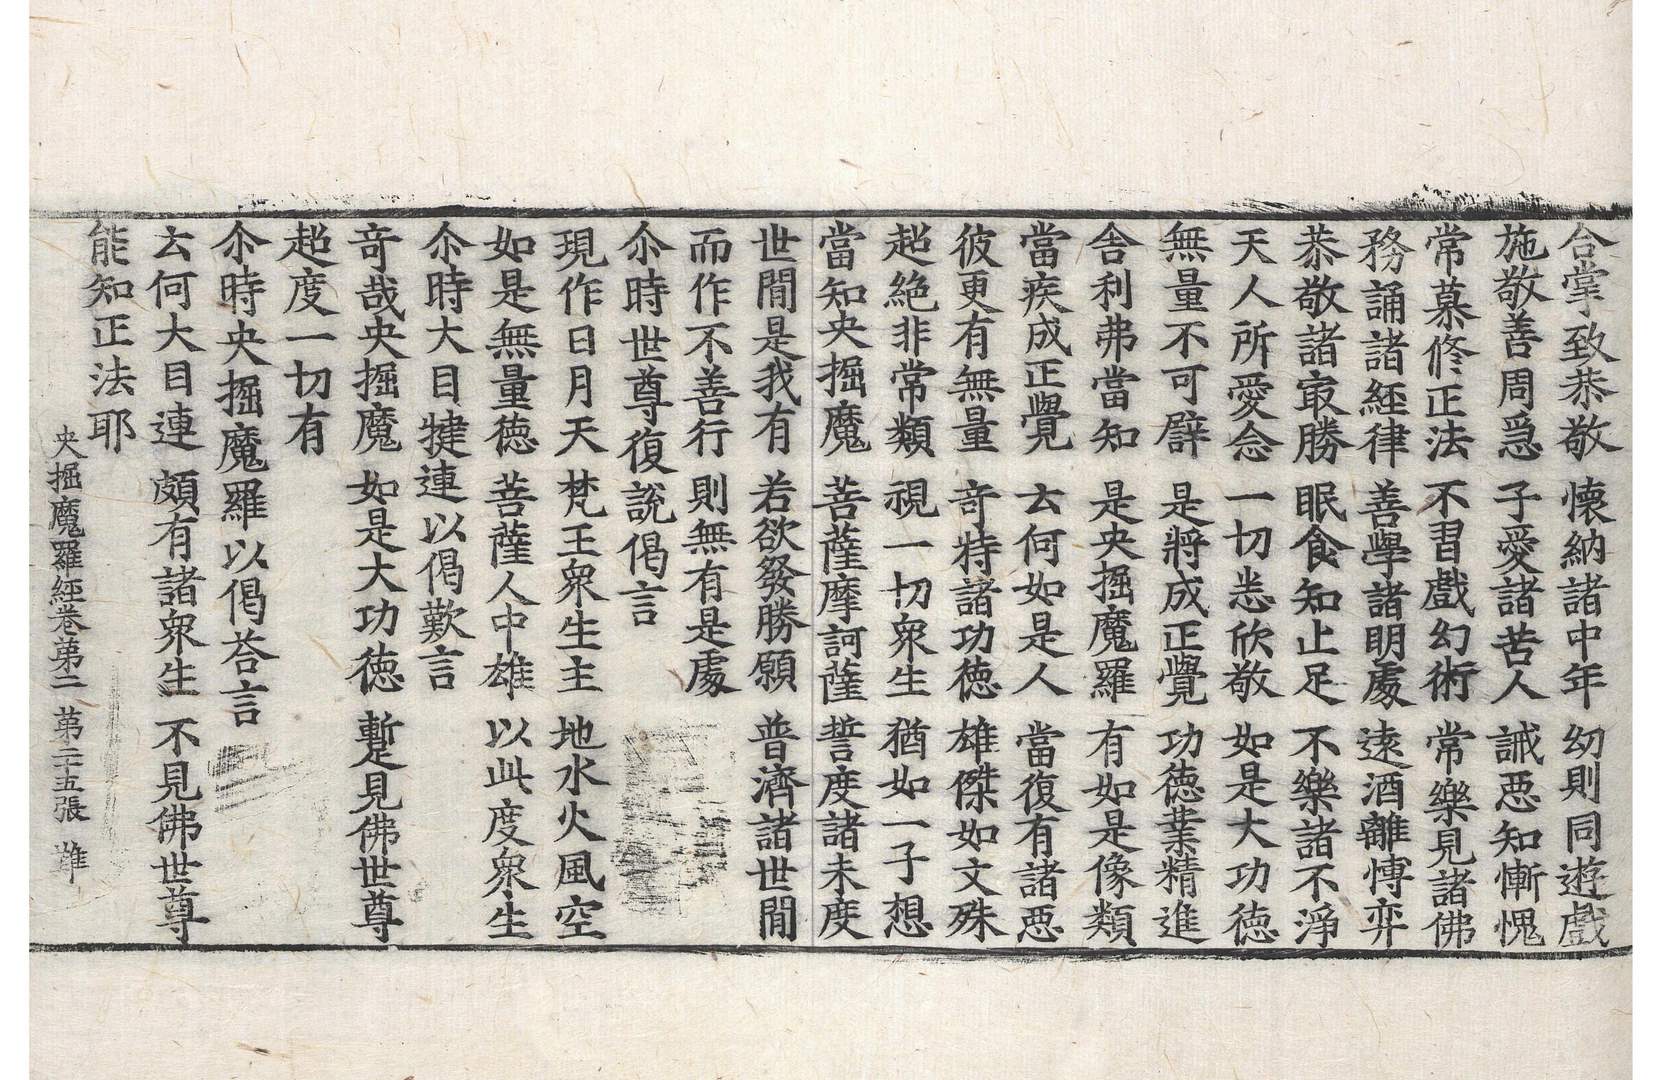 合掌致恭敬 懷納諸中年 幼則同遊戲
施敬善周爲 子愛諸苦人 誡惡知慚愧
常慕修正法 不習戲幻術 常樂見諸佛
務誦諸經律 善學諸明處 遠酒離慱弈
恭敬諸㝡勝 眠食知止足 不樂諸不淨
天人所愛念 一切悉欣敬 如是大功德
無量不可辟 是將成正覺 功德業精進
舎利弗當知 是央掘魔羅 有如是像類
當疾成正覺 云何如是人 當復有諸惡
彼更有無量 竒特諸功德 雄傑如文殊
超絶非常類 視一切衆生 猶如一子想
當知央掘魔 菩薩摩訶薩 誓度諸未度
世間是我有 若欲發勝願 普濟諸世間
而作不善行 則無有是處
尒時世尊復說偈言
現作日月天 梵王衆生主 地水火風空
如是無量德 菩薩人中雄 以此度衆生
尒時大目犍連以偈歎言
竒哉央掘魔 如是大功德 暫見佛世尊
超度一切有
尒時央掘魔羅以偈荅言
云何大目連 頗有諸衆生 不見佛世尊
能知正法耶
央掘魔羅經卷第二 第二十五張